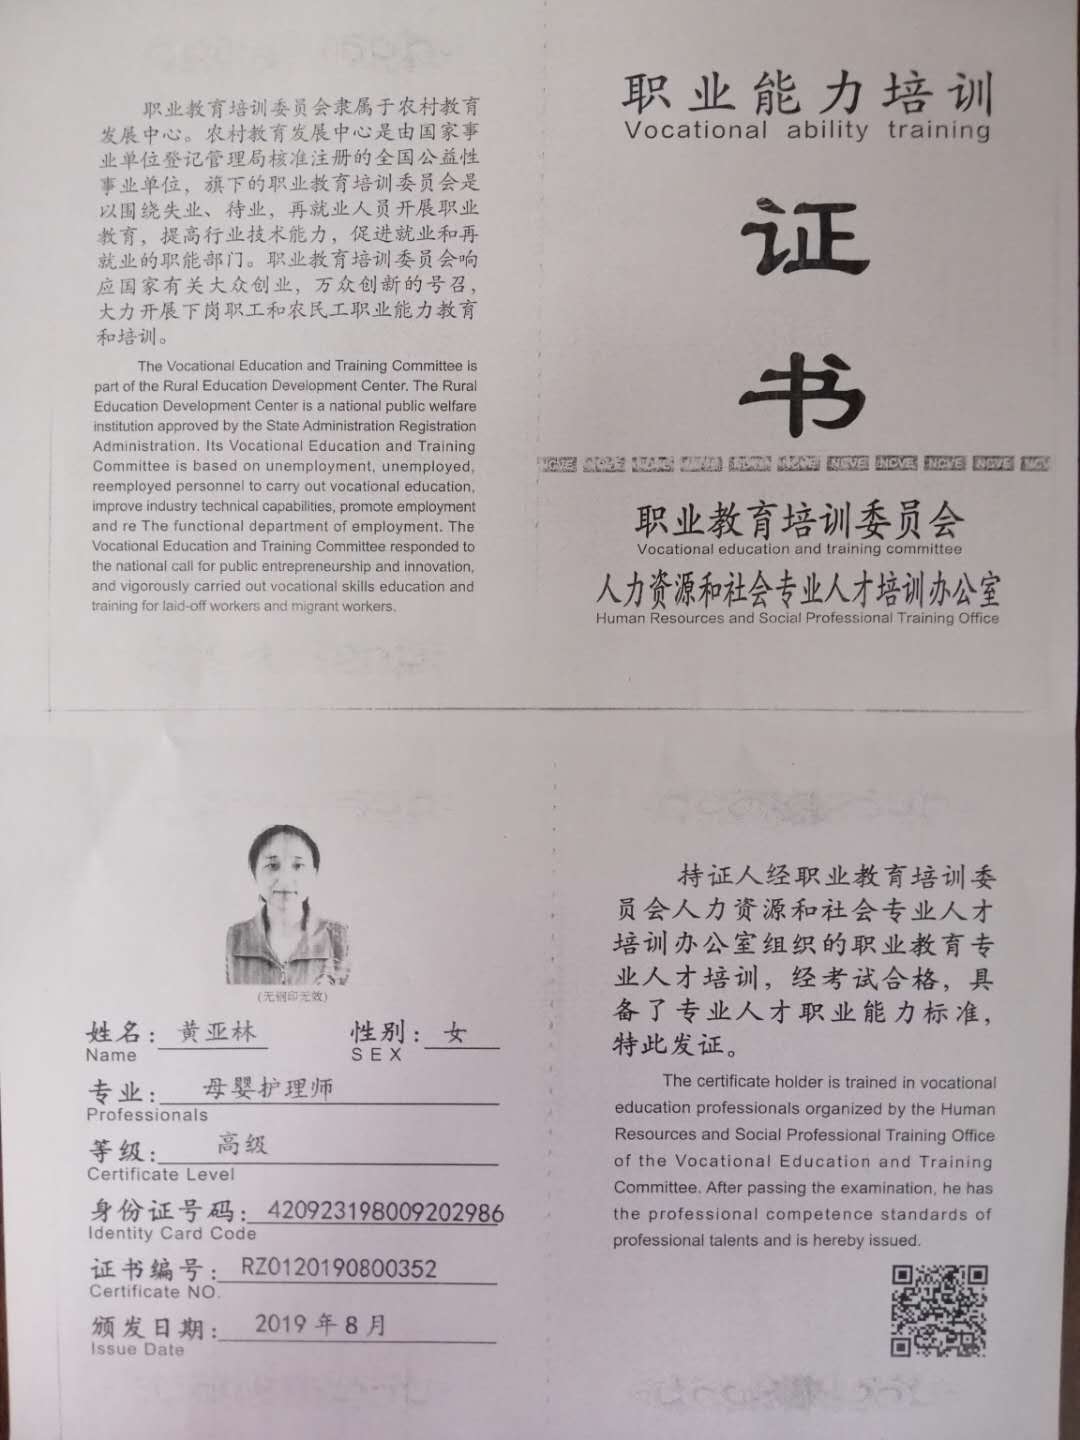 职业教育培训委员会隶属于农村教育
发展中心。农村教育发展中心是由国家事
业单位登记管理局核准注册的全国公益性
事业单位，旗下的职业教育培训委员会是
以围绕失业、待业，再就业人员开展职业
教育，提高行业技术能力，促进就业和再
就业的职能部门。职业教育培训委员会响
应国家有关大众创业，万众创新的号召，
大力开展下岗职工和农民工职业能力教育
和培训。
The Vocational Education and Training Committee is
part of the Rural Education Development Center. The Rural
Education Development Center is a national public welfare
institution approved by the State Administration Registration
Administration. Its Vocational Education and Training
Committee is based on unemployment, unemployed,
reemployed personnel to carry out vocational education,
improve industry technical capabilities, promote employment
and re The functional department of employment. The
Vocational Education and Training Committee responded to
the national call for public entrepreneurship and innovation,
and vigorously carried out vocational skills education and
training for laid-off workers and migrant workers.
职业能力培训
Vocational ability training
证
书
NCVE NCVE NCVE NCVE
职业教育培训委员会
Vocational education and training committee
人力资源和社会专业人才培训办公室
Human Resources and Social Professional Training Office
(无钢印无效)
姓名：黄亚林 性别：女
Name SEX
专业：母婴护理师
Professionals
等级：高级
Certificate Level
身份证号码：420923198009202986
Identity Card Code
证书编号：RZ0120190800352
Certificate NO.
颁发日期：2019年8月
Issue Date
持证人经职业教育培训委
员会人力资源和社会专业人才
培训办公室组织的职业教育专
业人才培训，经考试合格，具
备了专业人才职业能力标准，
特此发证。
The certificate holder is trained in vocational
education professionals organized by the Human
Resources and Social Professional Training Office
of the Vocational Education and Training
Committee. After passing the examination, he has
the professional competence standards of
professional talents and is hereby issued.